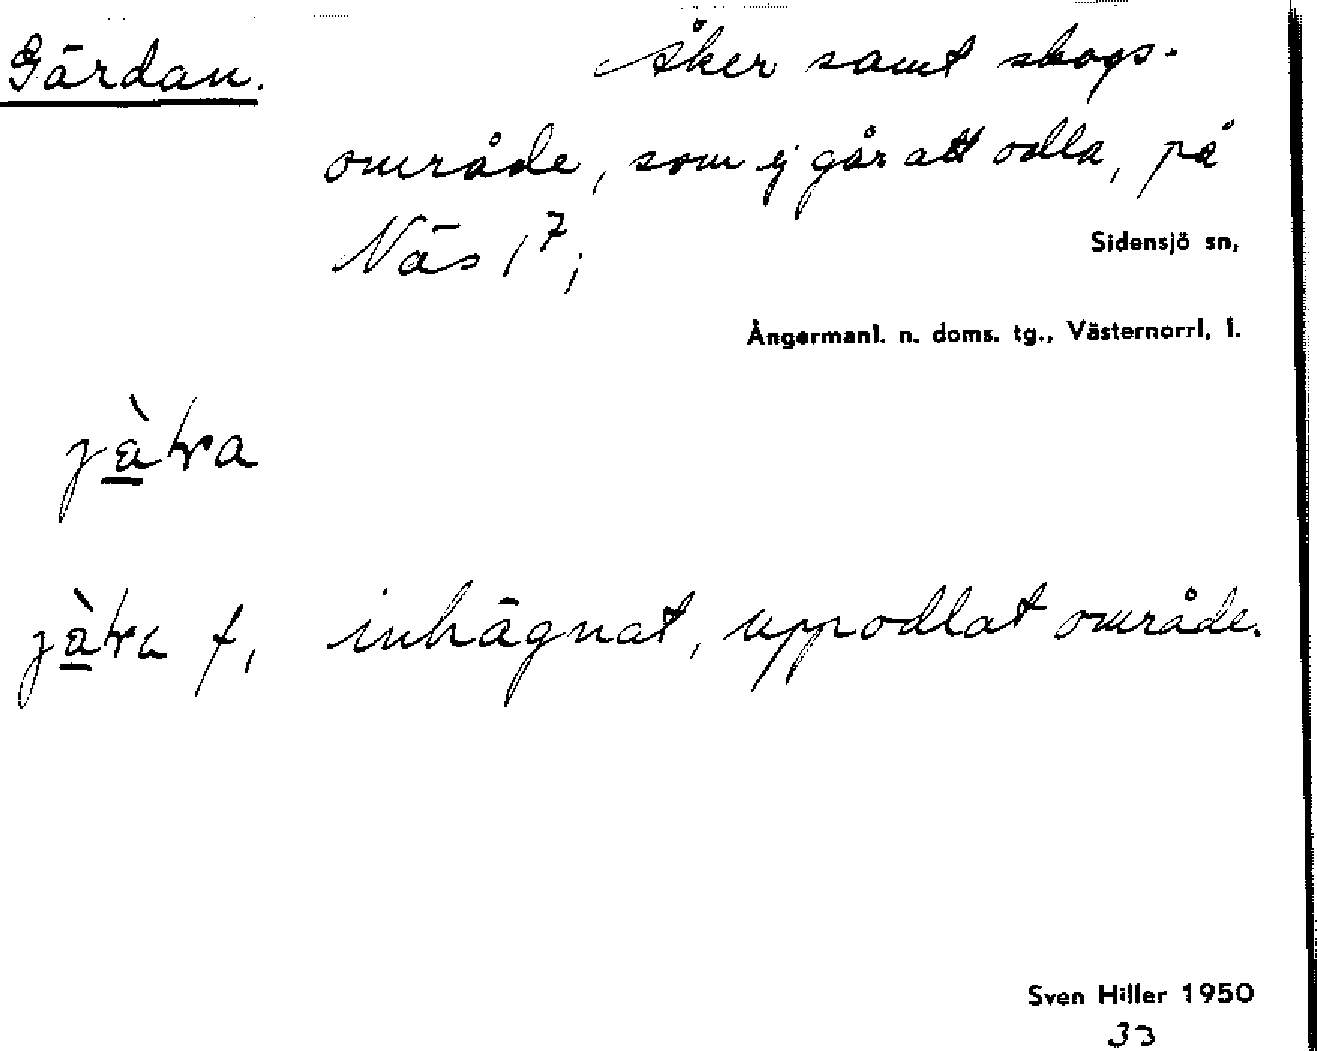 Gärdan.
Åker samt skogs-
område, som ej går att odla, på
Näs 1⁷;
Sidensjö sn,
Ångermanl. n. doms. tg., Västernorrl. l.
f, inhägnat, uppodlat område.
Sven Hiller 1950
33